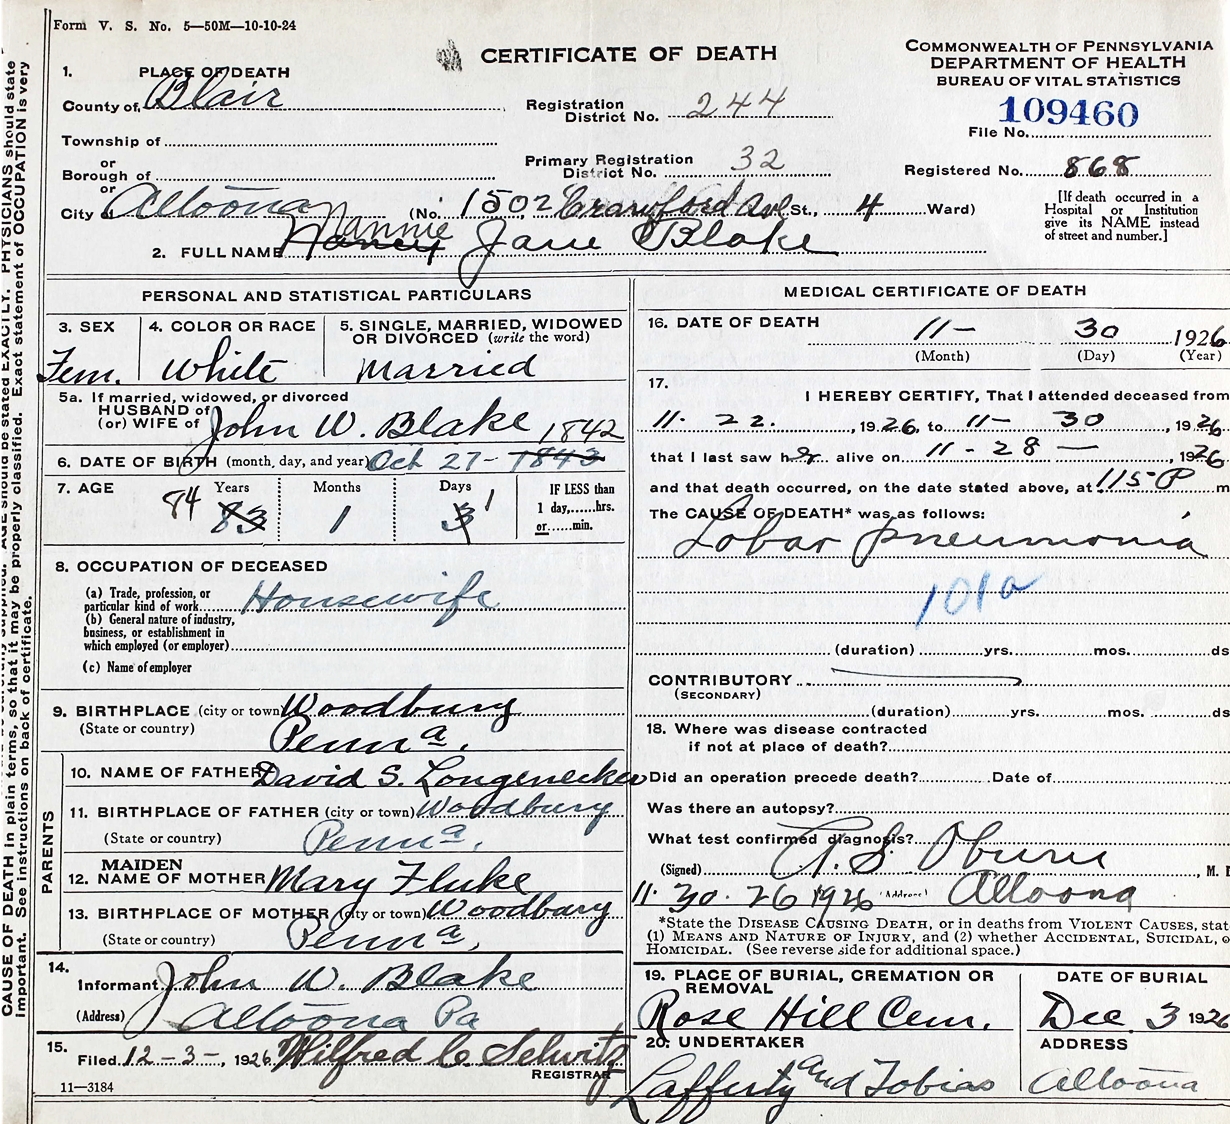 Form V. S. No. 5—50M—10-10-24
CERTIFICATE OF DEATH
COMMONWEALTH OF PENNSYLVANIA
DEPARTMENT OF HEALTH
BUREAU OF VITAL STATISTICS
109460
File No.
Registered No. 868
[If death occurred in a
Hospital or Institution
give its NAME instead
of street and number.]
1. PLACE OF DEATH
County of, Blair
Registration
District No. 244
Township of
or
Borough of
Primary Registration
District No. 32
or
City of Altoona (No. 1502 Crawford Ave St., 4 Ward)
Nannie
2. FULL NAME Nancy Jane Blake
PERSONAL AND STATISTICAL PARTICULARS
3. SEX
Fem.
4. COLOR OR RACE
White
5. SINGLE, MARRIED, WIDOWED
OR DIVORCED (write the word)
Married
5a. If married, widowed, or divorced
HUSBAND of
(or) WIFE of John W. Blake
1842
6. DATE OF BIRTH (month, day, and year) Oct 27- 1843
7. AGE
Years
84 83
Months
1
Days
3 1
IF LESS than
1 day,......hrs.
or......min.
8. OCCUPATION OF DECEASED
(a) Trade, profession, or
particular kind of work Housewife
(b) General nature of industry,
business, or establishment in
which employed (or employer)
(c) Name of employer
9. BIRTHPLACE (city or town) Woodbury
(State or country) Penna.
PARENTS
10. NAME OF FATHER David S. Longenecker
11. BIRTHPLACE OF FATHER (city or town) Woodbury
(State or country) Penna.
12. MAIDEN
NAME OF MOTHER Mary Fluke
13. BIRTHPLACE OF MOTHER (city or town) Woodbury
(State or country) Penna,
14.
Informant John W. Blake
(Address) Altoona Pa
15.
Filed 12-3-, 1926 Wilfred C. Selwitz
REGISTRAR
11—3184
MEDICAL CERTIFICATE OF DEATH
16. DATE OF DEATH 11- 30 1926
(Month) (Day) (Year)
17.
I HEREBY CERTIFY, That I attended deceased from
11. 22., 1926, to 11- 30, 1926
that I last saw her alive on 11-28—, 1926
and that death occurred, on the date stated above, at 115 P m
The CAUSE OF DEATH* was as follows:
Lobar pneumonia
101a
(duration) yrs. mos. ds
CONTRIBUTORY
(SECONDARY)
(duration) yrs. mos. ds
18. Where was disease contracted
if not at place of death?
Did an operation precede death? Date of
Was there an autopsy?
What test confirmed diagnosis?
(Signed) , M. D
11. 30. 26 1926 (Address) Altoona
*State the DISEASE CAUSING DEATH, or in deaths from VIOLENT CAUSES, stat
(1) MEANS AND NATURE OF INJURY, and (2) whether ACCIDENTAL, SUICIDAL, o
HOMICIDAL. (See reverse side for additional space.)
19. PLACE OF BURIAL, CREMATION OR
REMOVAL
Rose Hill Cem.
DATE OF BURIAL
Dec. 3 1926
20. UNDERTAKER
Lafferty and Tobias
ADDRESS
Altoona
AGE should be stated EXACTLY. PHYSICIANS should state
CAUSE OF DEATH in plain terms, so that it may be properly classified. Exact statement of OCCUPATION is very
important. See instructions on back of certificate.